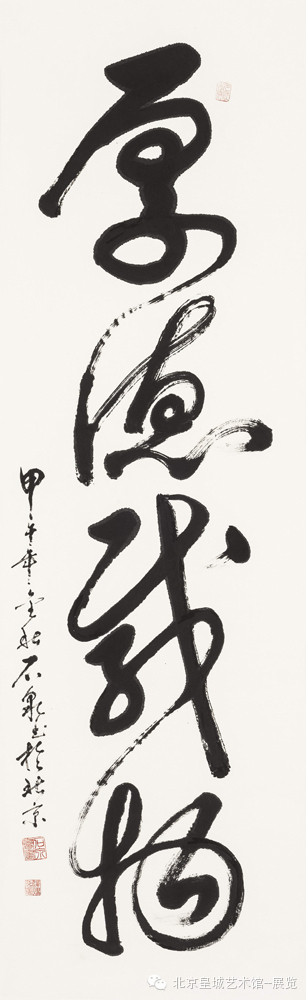 厚德载物
甲午年金秋石泉书于北京
北京皇城艺术馆-展览